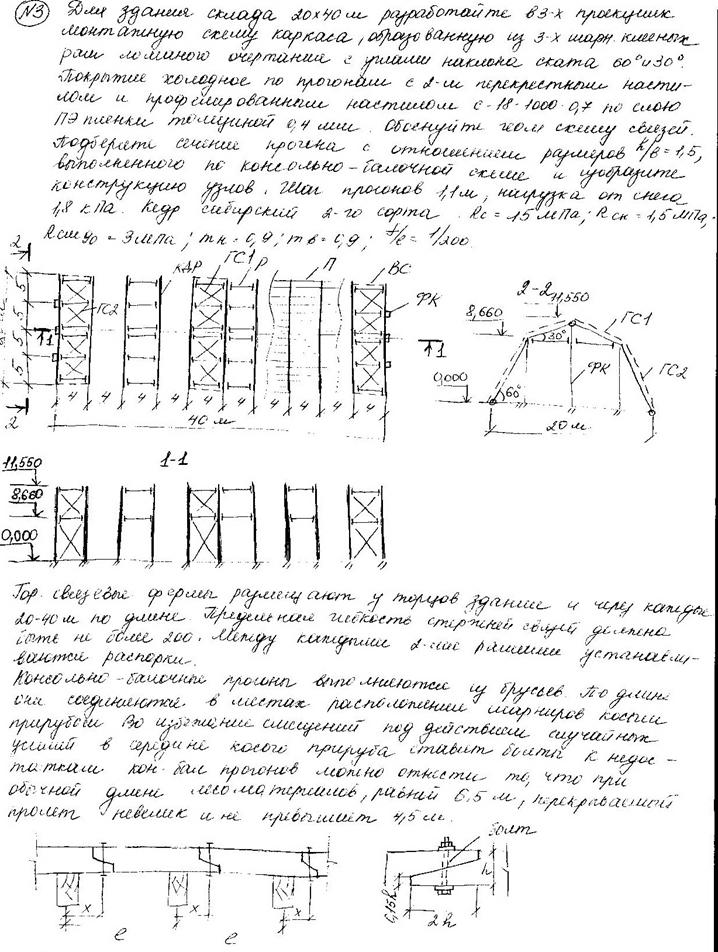 N3 Для здания склада 20х40 м разработайте в 3-х проекциях
монтажную схему каркаса, образованную из 3-х шарн. клееных
рам ломаного очертания с углами наклона ската 60° и 30°.
Покрытие холодное по прогонам с 2-м перекрестным насти-
лом и профилированным настилом С-18-1000-0,7 по слою
ПЭ пленки толщиной 0,4 мм. Обоснуйте геом схему связей.
Подберете сечение прогона с отношением размеров h/в=1,5,
выполненного по консольно-балочной схеме и изобразите
конструкцию узлов. Шаг прогонов 1,1 м, нагрузка от снега
1,8 кПа. Кедр сибирский 2-го сорта. Rс=15 МПа; Rск=1,5 МПа,
Rсм90=3 МПа; mн=0,9; mв=0,9; f/l=1/200
2
КДР
ГС1
Р
П
ВС
ФК
ГС2
5
5
5
5
1
1
4
4
4
4
4
4
4
4
4
4
40 м
2
2-2
11,550
8,660
ГС1
30°
ФК
ГС2
0,000
60°
20 м
1-1
11,550
8,660
0,000
Гор. связевые фермы размещают у торцов здания и через каждые
20-40 м по длине. Предельная гибкость стержней связей должна
быть не более 200. Между каждыми 2-мя рамами устанавли-
ваются распорки.
Консольно-балочные прогоны выполняются из брусьев. По длине
они соединяются в местах расположения шарниров косым
прирубом. Во избежание смещений под действием случайных
усилий в середине косого прируба ставит болты. К недос-
таткам кон-бал прогонов можно отнести то, что при
обычной длине лесоматериалов, равной 6,5 м, перекрываемый
пролет невелик и не превышает 4,5 м.
болт
x
x
x
l
l
0,15h
h
2h